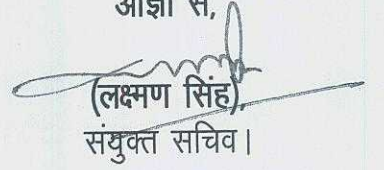 आज्ञा से,
(लक्ष्मण सिंह),
संयुक्त सचिव।